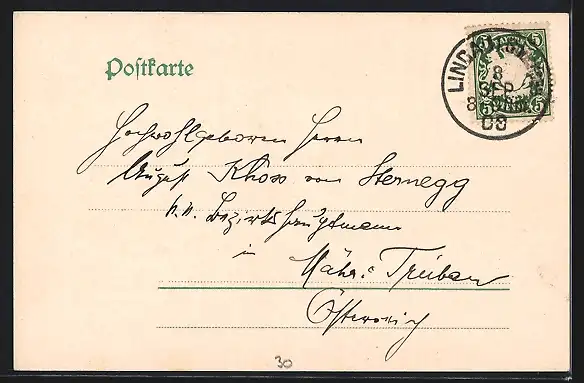 Postkarte
LINDAU
8
SEP
03
5 BAYERN 5
5 5
Hochwohlgeboren Herrn
August Khoss von Sternegg
k. k. Bezirkshauptmann
in Mähr: Trübau
Österreich
30